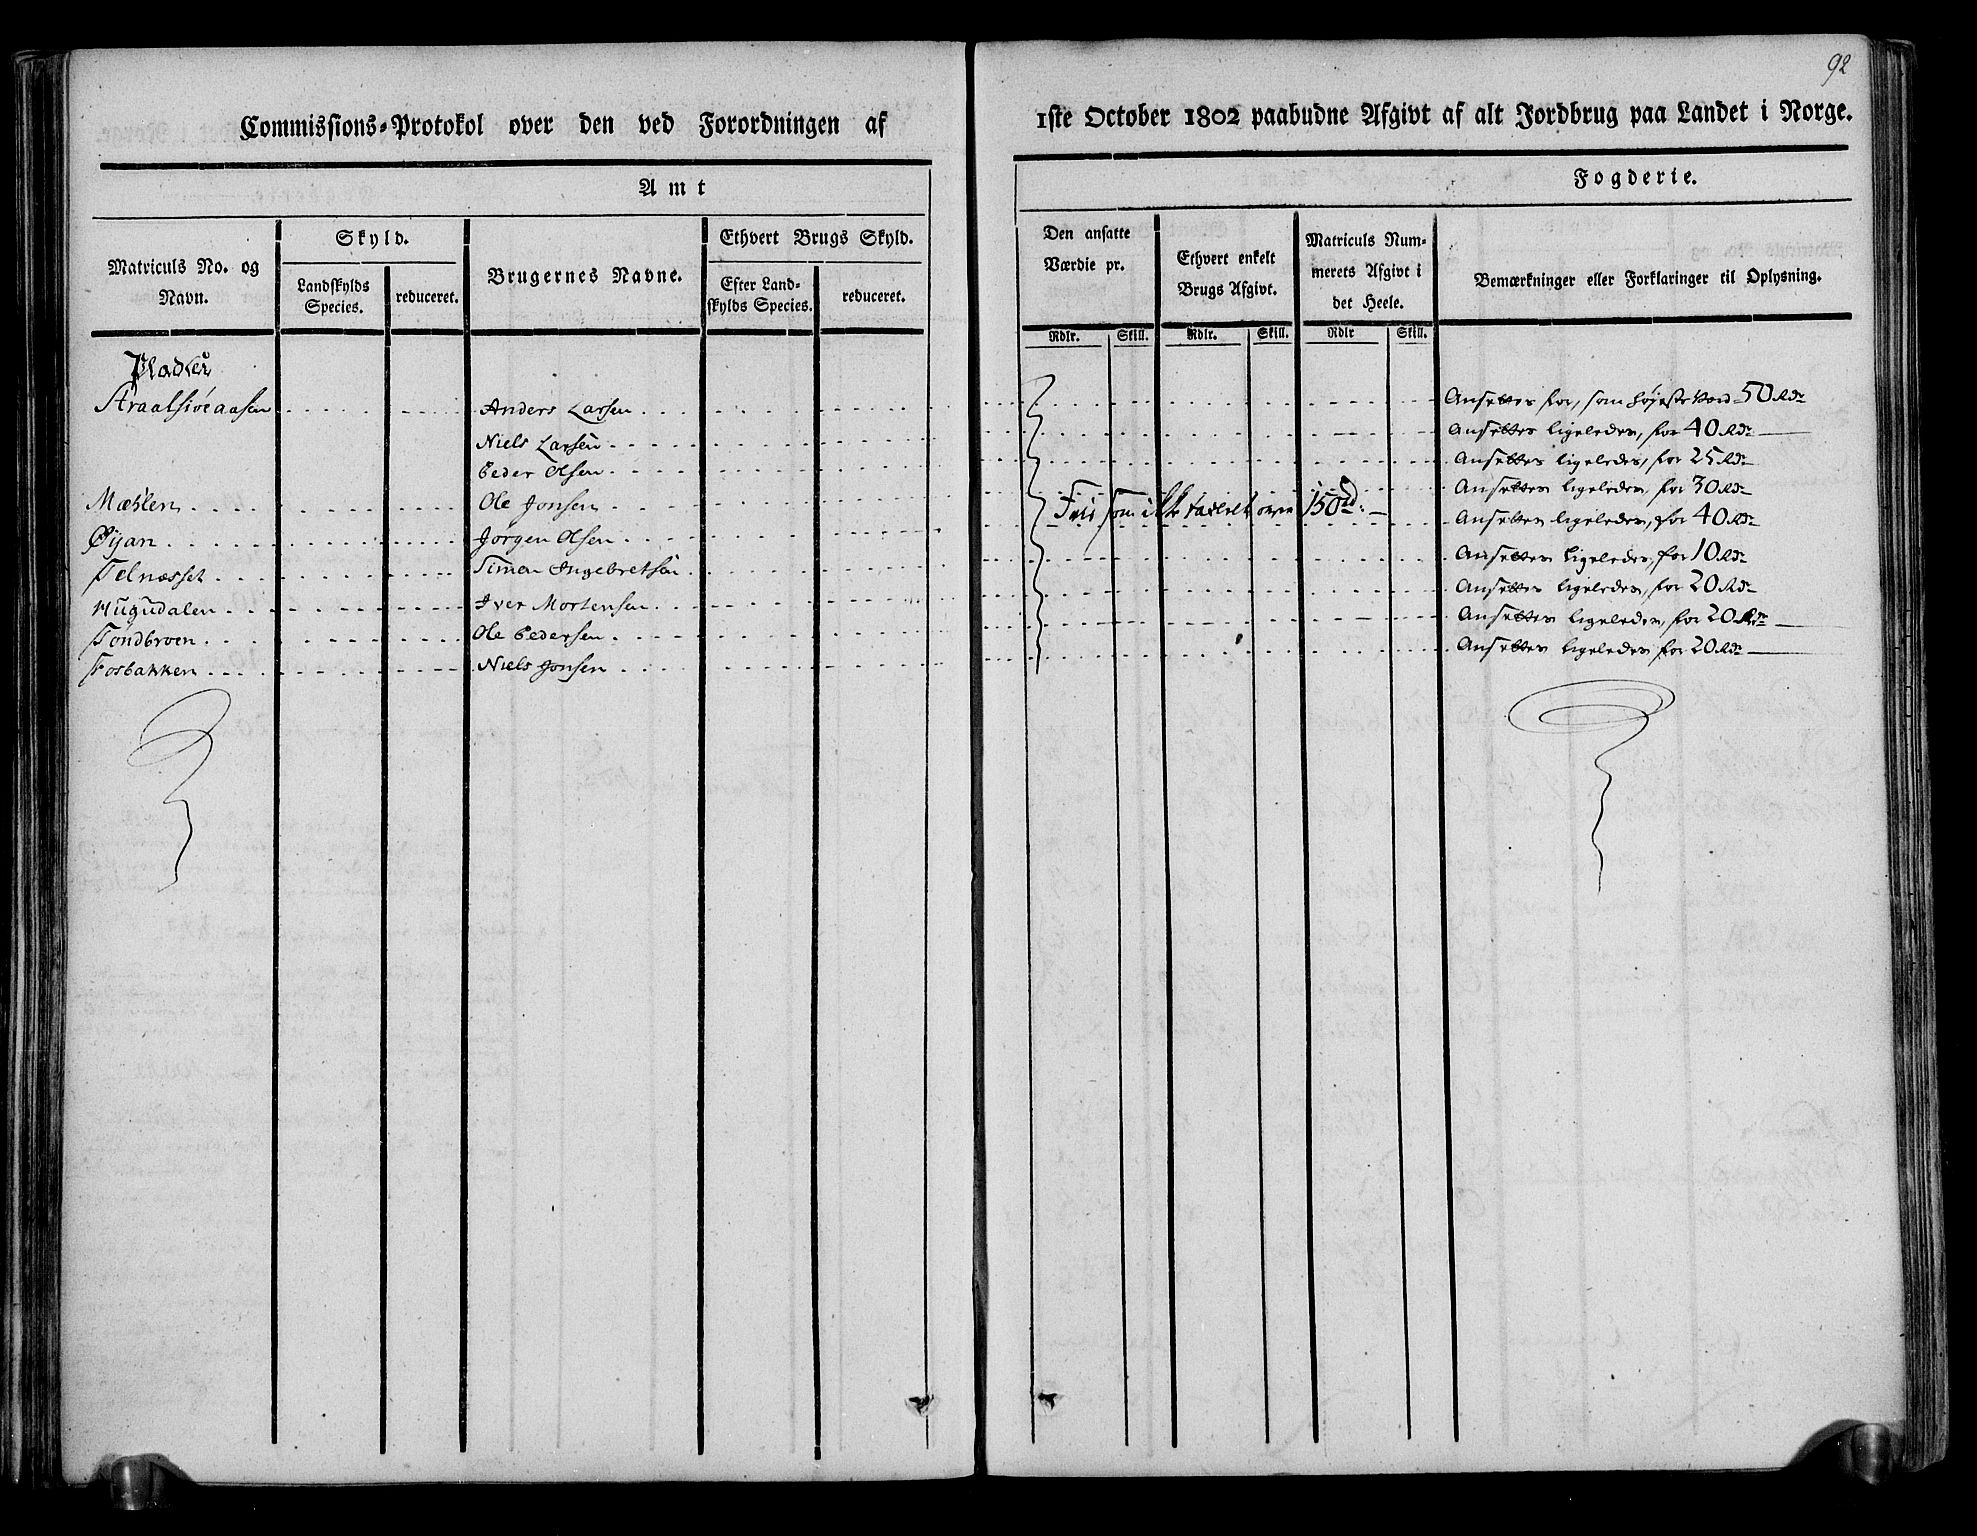 92
Commissions-Protokol over den ved Forordningen af 1ste October 1802 paabudne Afgivt af alt Jordbrug paa Landet i Norge.
Amt Fogderie.
Matriculs No. og Navn.
Skyld.
Landskylds Species.
reduceret.
Brugernes Navne.
Ethvert Brugs Skyld.
Efter Landskylds Species.
reduceret.
Den ansatte Værdie pr.
Ethvert enkelt Brugs Afgivt.
Matriculs Nummerets Afgivt i det Heele.
Bemærkninger eller Forklaringer til Oplysning.
Rdlr. Skill. Rdlr. Skill. Rdlr Skill.
Pladser
Straalsiøeaasen Anders Larsen Ansettes for, som høyeste Værd 50 Rdr
Niels Larsen Ansettes ligeledes, for 40 Rdr
Peder Olsen Ansettes ligeledes, for 25 Rdr
Mæhlen Ole Jonsen Ansettes ligeledes, for 30 Rdr
Frii som ikke taxeret over 150 rd:
Øyan Jørgen Olsen Ansettes ligeledes, for 40 Rdr
Telnæsset Simen Ingebretsen Ansettes ligeledes, for 10 Rdr
Hugudalen Iver Mortensen Ansettes ligeledes, for 20 Rdr
Tøndbroen Ole Pedersen Ansettes ligeledes, for 20 Rdr
Fosbakken Niels Jonsen Ansettes ligeledes for 20 Rdr